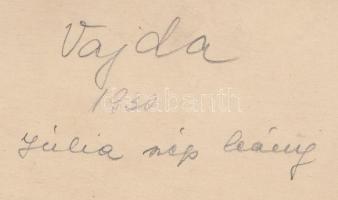 Vajda
1930
Júlia szép leány